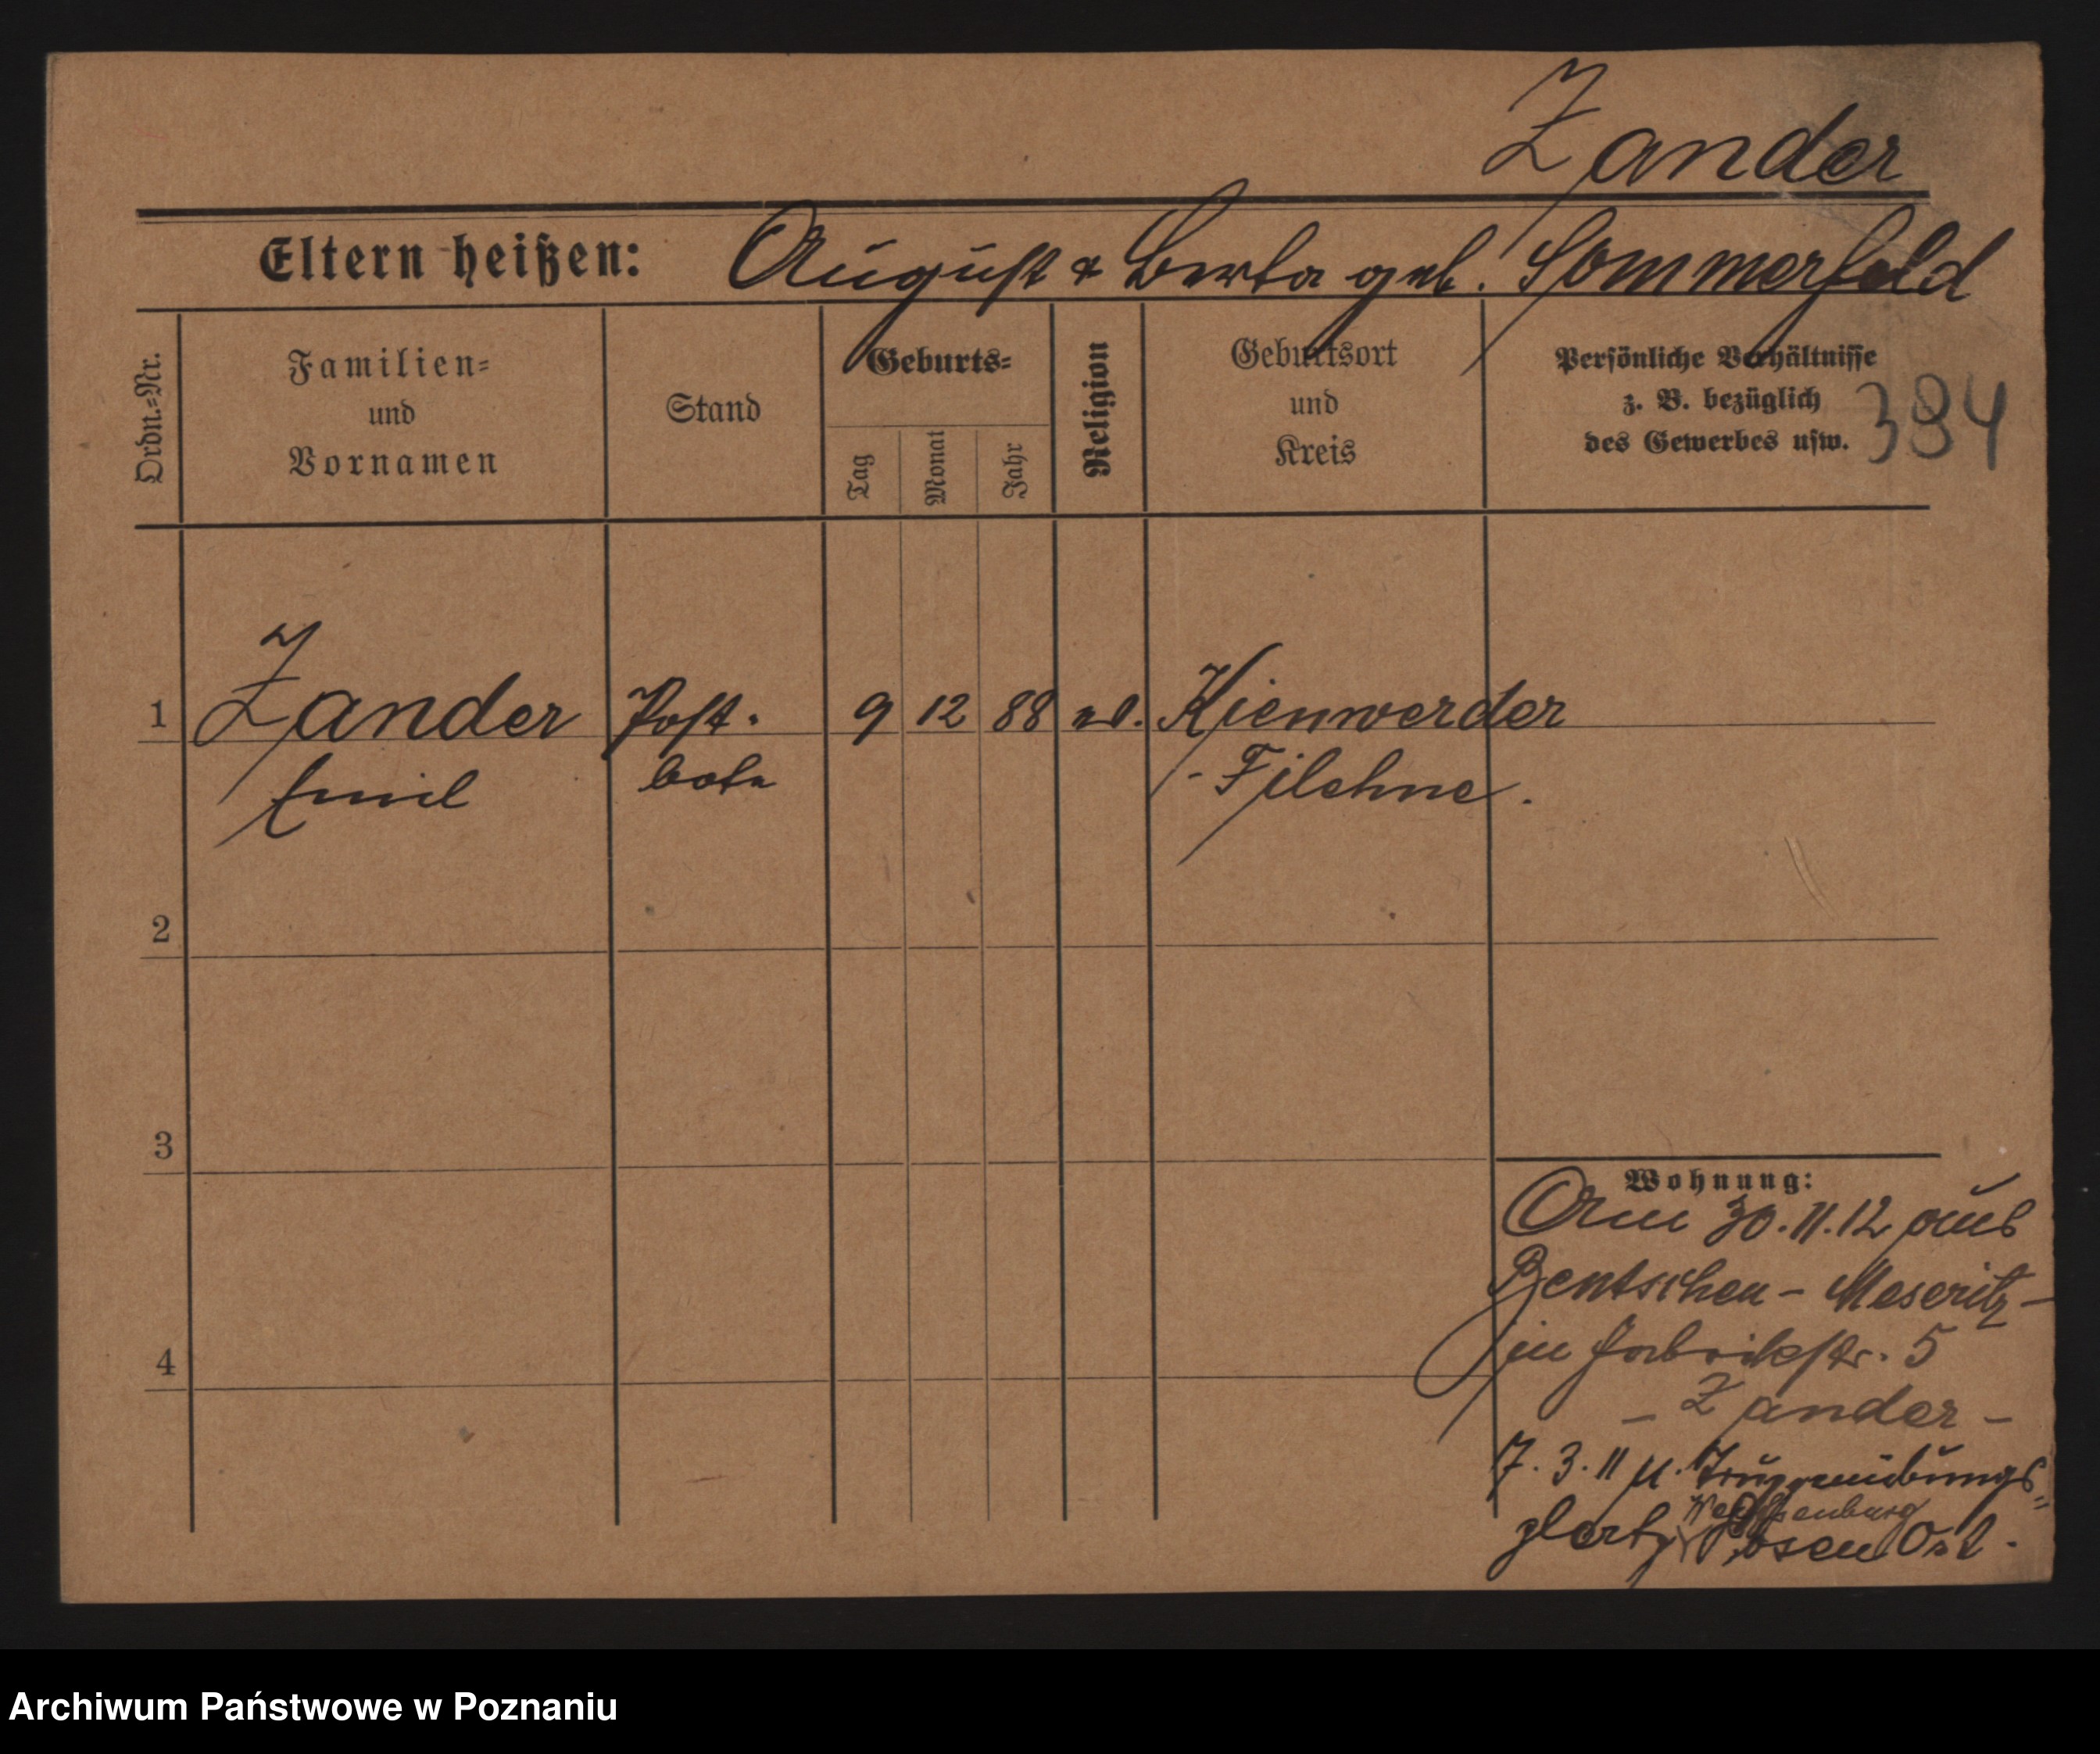 Zander
Eltern heißen: August & Berta geb. Sommerfeld
Ordn.=Nr.
Familien=
und
Vornamen
Stand
Geburts=
Tag
Monat
Jahr
Religion
Geburtsort
und
Kreis
Persönliche Verhältnisse
z. B. bezüglich
des Gewerbes usw.
384
1 Zander Post- 9 12 88 ev. Kienwerder
Emil bote - Filehne.
2
3
4
Wohnung:
Am 30.11.12 aus
Bentschen - Meseritz -
in Fabrikstr. 5
- Zander -
7.3.11 n. Truppenübungs=
platz Posen Ost.
Archiwum Państwowe w Poznaniu